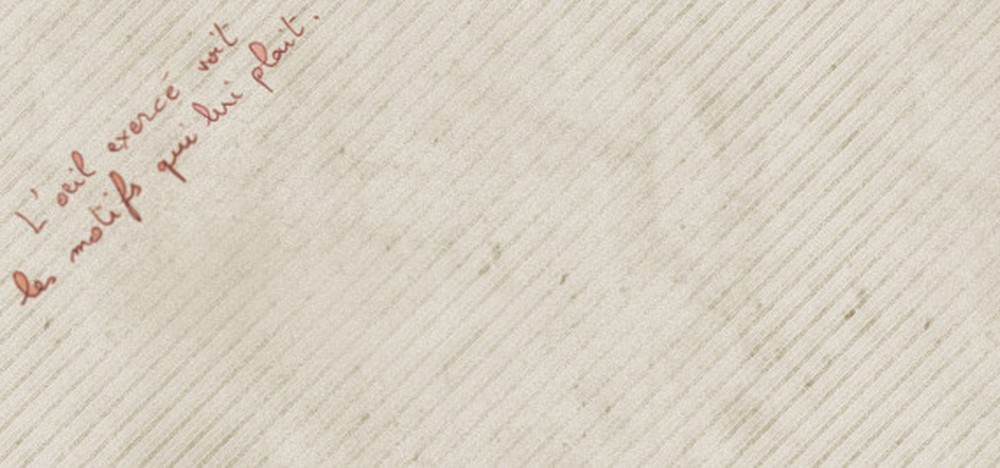 L'œil exercé voit
les motifs qui lui plait.